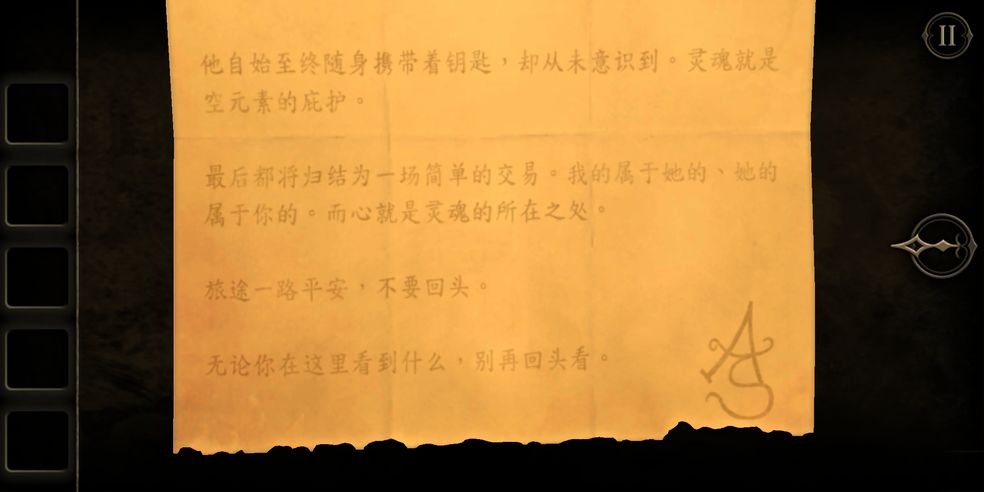 他自始至终随身携带着钥匙，却从未意识到。灵魂就是
空元素的庇护。
最后都将归结为一场简单的交易。我的属于她的、她的
属于你的。而心就是灵魂的所在之处。
旅途一路平安，不要回头。
无论你在这里看到什么，别再回头看。
AS
II